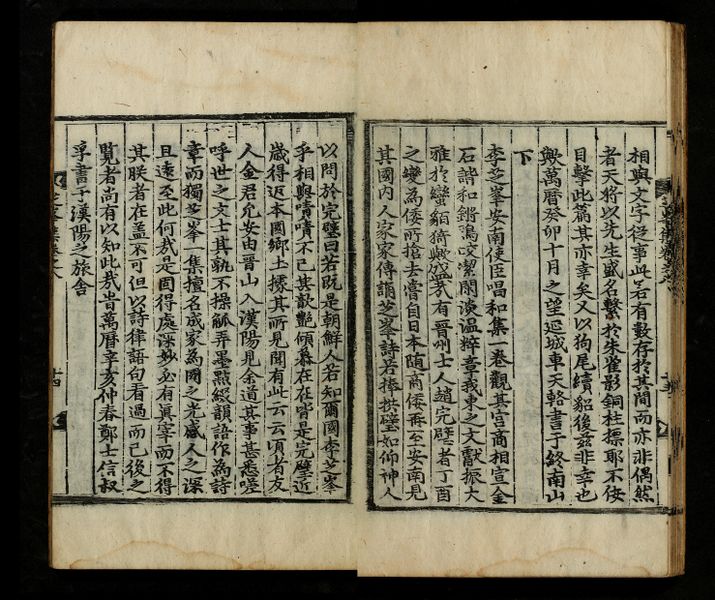 相與文字從事此若有數存於其間而亦非偶然
者天將以先生盛名繫於朱崔影銅柱標耶不佞
目擊此篇其亦幸矣又以狗尾續貂後玆非幸也
歟萬曆癸卯十月之望延城車天輅書于終南山
下
李芝峯安南使臣唱和集一卷觀其宫商相宣金
石諧和鏘鳴皎潔閑淡温粹章我東之文獻振大
雅於蠻貊猗歟盛哉有晉州士人趙完璧者丁酉
之變爲倭所搶去嘗自日本随商倭再至安南見
其國内人家家傳誦芝峯詩若捧拱璧如仰神人
以問於完璧曰若旣是朝鮮人若知爾國李芝峯
乎相與嘖嘖不已其歆艶傾慕在在皆是完璧近
歲得返本國鄉土據其所見聞有此云云頃者友
人金君允安由晉山入漢陽見余道其事甚悉嗟
呼世之文士其孰不操觚弄墨點綴韻語作爲詩
章而獨芝峯一集擅名成家爲國之光感人之深
且遠至此何哉是固得處淡妙必有眞宰而不得
其朕者在盖不可但以詩律語句看過而已後之
覽者尚有以知此哉旹萬曆辛亥仲春鄭士信叔
孚書于漢陽之旅舍
十四